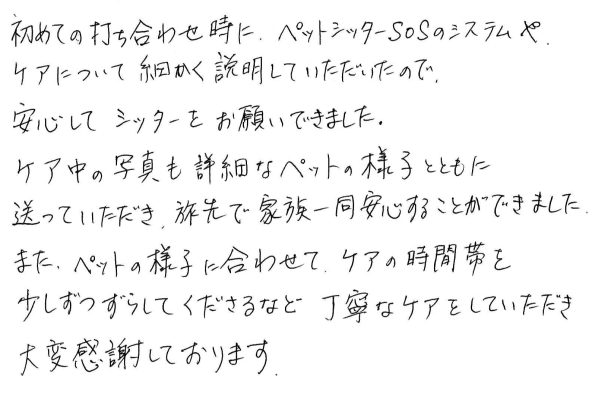 初めての打ち合わせ時に、ペットシッターSOSのシステムや、
ケアについて細かく説明していただいたので、
安心してシッターをお願いできました。
ケア中の写真も詳細なペットの様子とともに
送っていただき、旅先で家族一同安心することができました。
また、ペットの様子に合わせて、ケアの時間帯を
少しずつずらしてくださるなど丁寧なケアをしていただき
大変感謝しております。